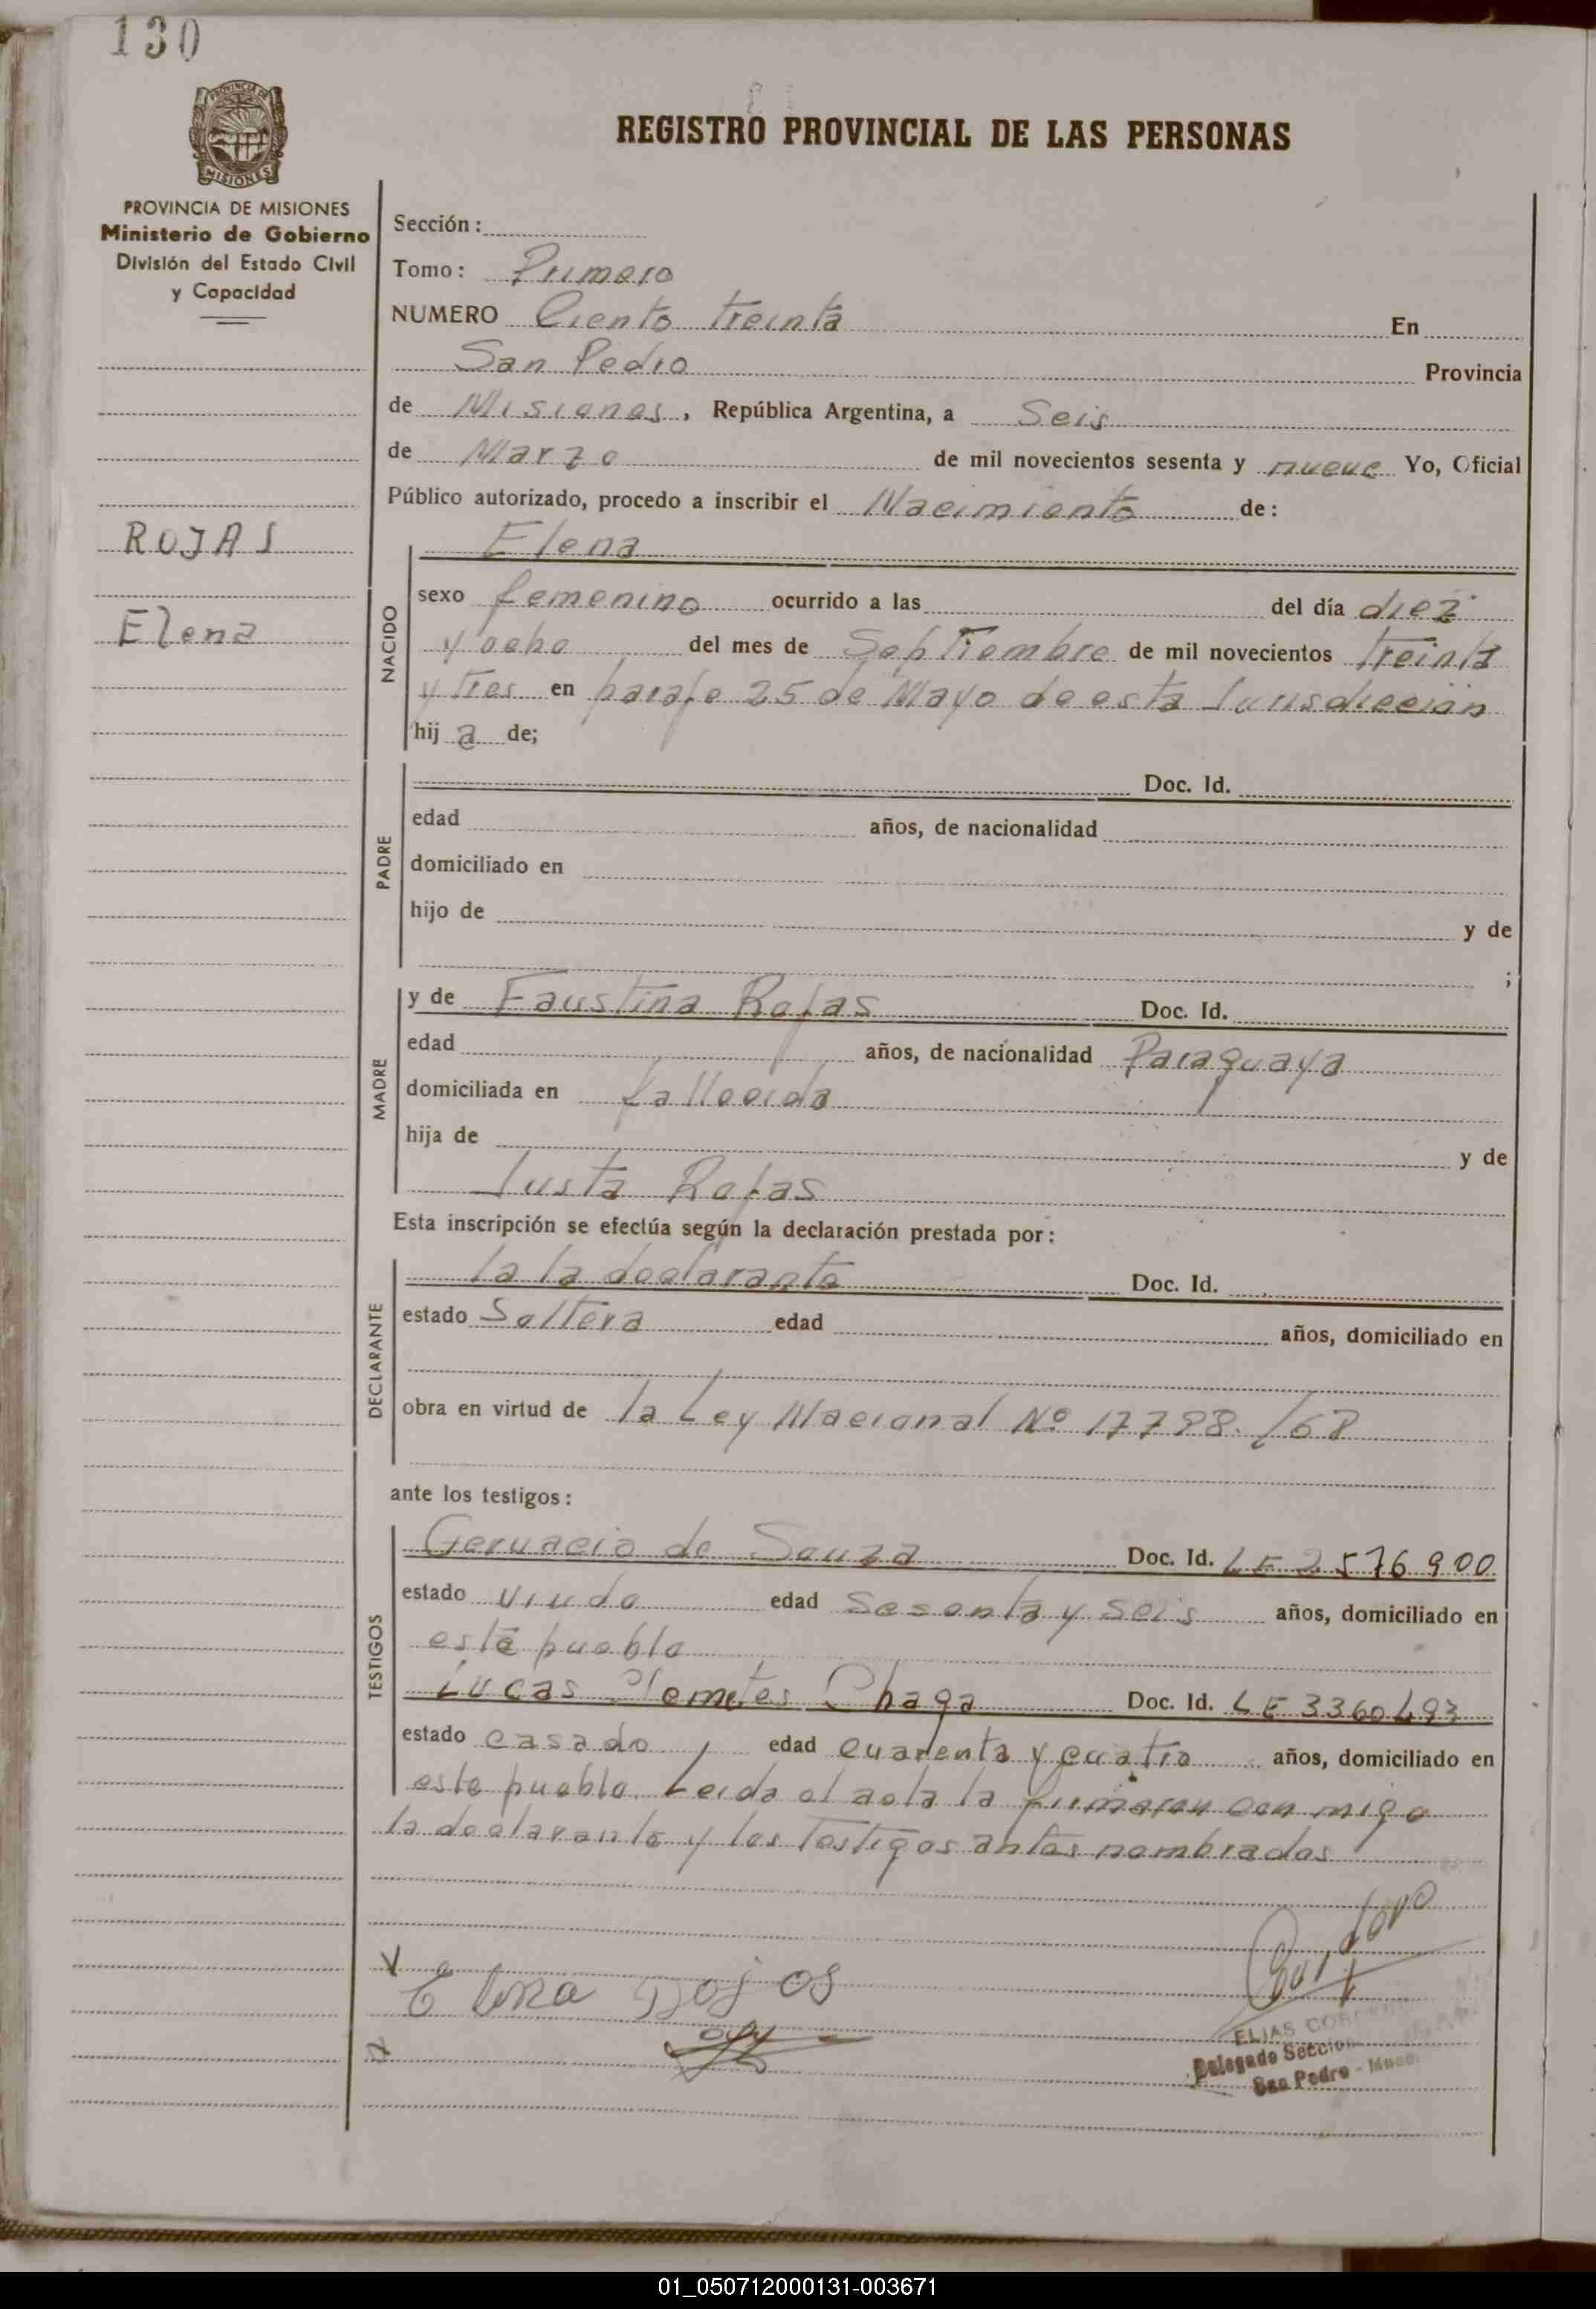 130
PROVINCIA DE
MISIONES
REGISTRO PROVINCIAL DE LAS PERSONAS
PROVINCIA DE MISIONES
Ministerio de Gobierno
División del Estado Civil
y Capacidad
Sección:
Tomo: Primero
NUMERO Ciento treinta En
San Pedro Provincia
de Misiones, República Argentina, a Seis
de Marzo de mil novecientos sesenta y nueve Yo, Oficial
Público autorizado, procedo a inscribir el Nacimiento de:
ROJAS
Elena
Elena
NACIDO
sexo femenino ocurrido a las del día diez
y ocho del mes de Septiembre de mil novecientos treinta
y tres en paraje 25 de Mayo de esta Jurisdicción
hij a de;
PADRE
Doc. Id.
edad años, de nacionalidad
domiciliado en
hijo de y de
;
MADRE
y de Faustina Rojas Doc. Id.
edad años, de nacionalidad Paraguaya
domiciliada en fallecida
hija de y de
Justa Rojas
Esta inscripción se efectúa según la declaración prestada por:
DECLARANTE
la la declarante Doc. Id.
estado Soltera edad años, domiciliado en
obra en virtud de la Ley Nacional Nº 17798./68
ante los testigos:
TESTIGOS
Gervacio de Souza Doc. Id. LE 2576900
estado viudo edad Sesenta y Seis años, domiciliado en
este pueblo
Lucas Chaga Doc. Id. LE 3360493
estado casado edad cuarenta y cuatro años, domiciliado en
este pueblo. Leida el acta la firmaron con migo
la declarante y los Testigos antes nombrados
Elena Rojas
ELIAS
Delegado Seccion
San Pedro -
01_050712000131-003671